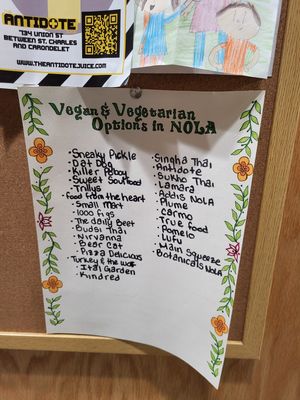 ANTIDOTE
734 UNION ST
BETWEEN ST. CHARLES
AND CARONDELET
WWW.THEANTIDOTEJUICE.COM
Vegan & Vegetarian
Options in NOLA
• Sneaky Pickle
• Dat Dog
• Killer Poboy
• Sweet Soulfood
• Trilly's
• Food from the heart
• Small Mart
• 1000 figs
• The daily Beet
• Budsi Thai
• Nirvanna
• Bear Cat
• Pizza Delicious
• Turkey & the wolf
• Ital Garden
• Kindred
• Singha Thai
• Antidote
• Sukho Thai
• Lamara
• Addis NOLA
• Plume
• Carmo
• True food
• Pomelo
• Lufu
• Main Squeeze
• Botanicals NOLA